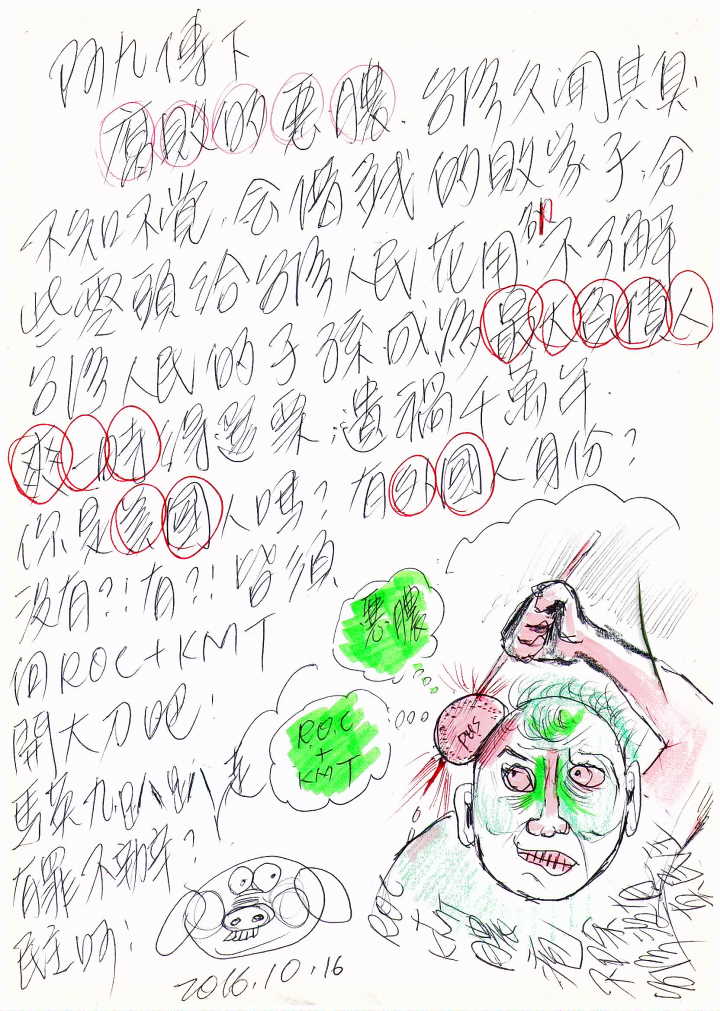 阿九傳下
腐敗的惡膿．台灣久聞其臭
不知不覺．會借錢的敗家子．分
些零頭給台灣人民花用．卻不了解
台灣人民的子孫成為最大負債人
爽一時得選票．遺禍千萬年．
你是美國人嗎？有外國人身份？
沒有？！有？！皆須
向ROC+KMT
開大刀吧！
馬英九
有罪不辦？
民主啊！
惡膿
R.O.C
+
KMT
pus
ROC
2016.10.16